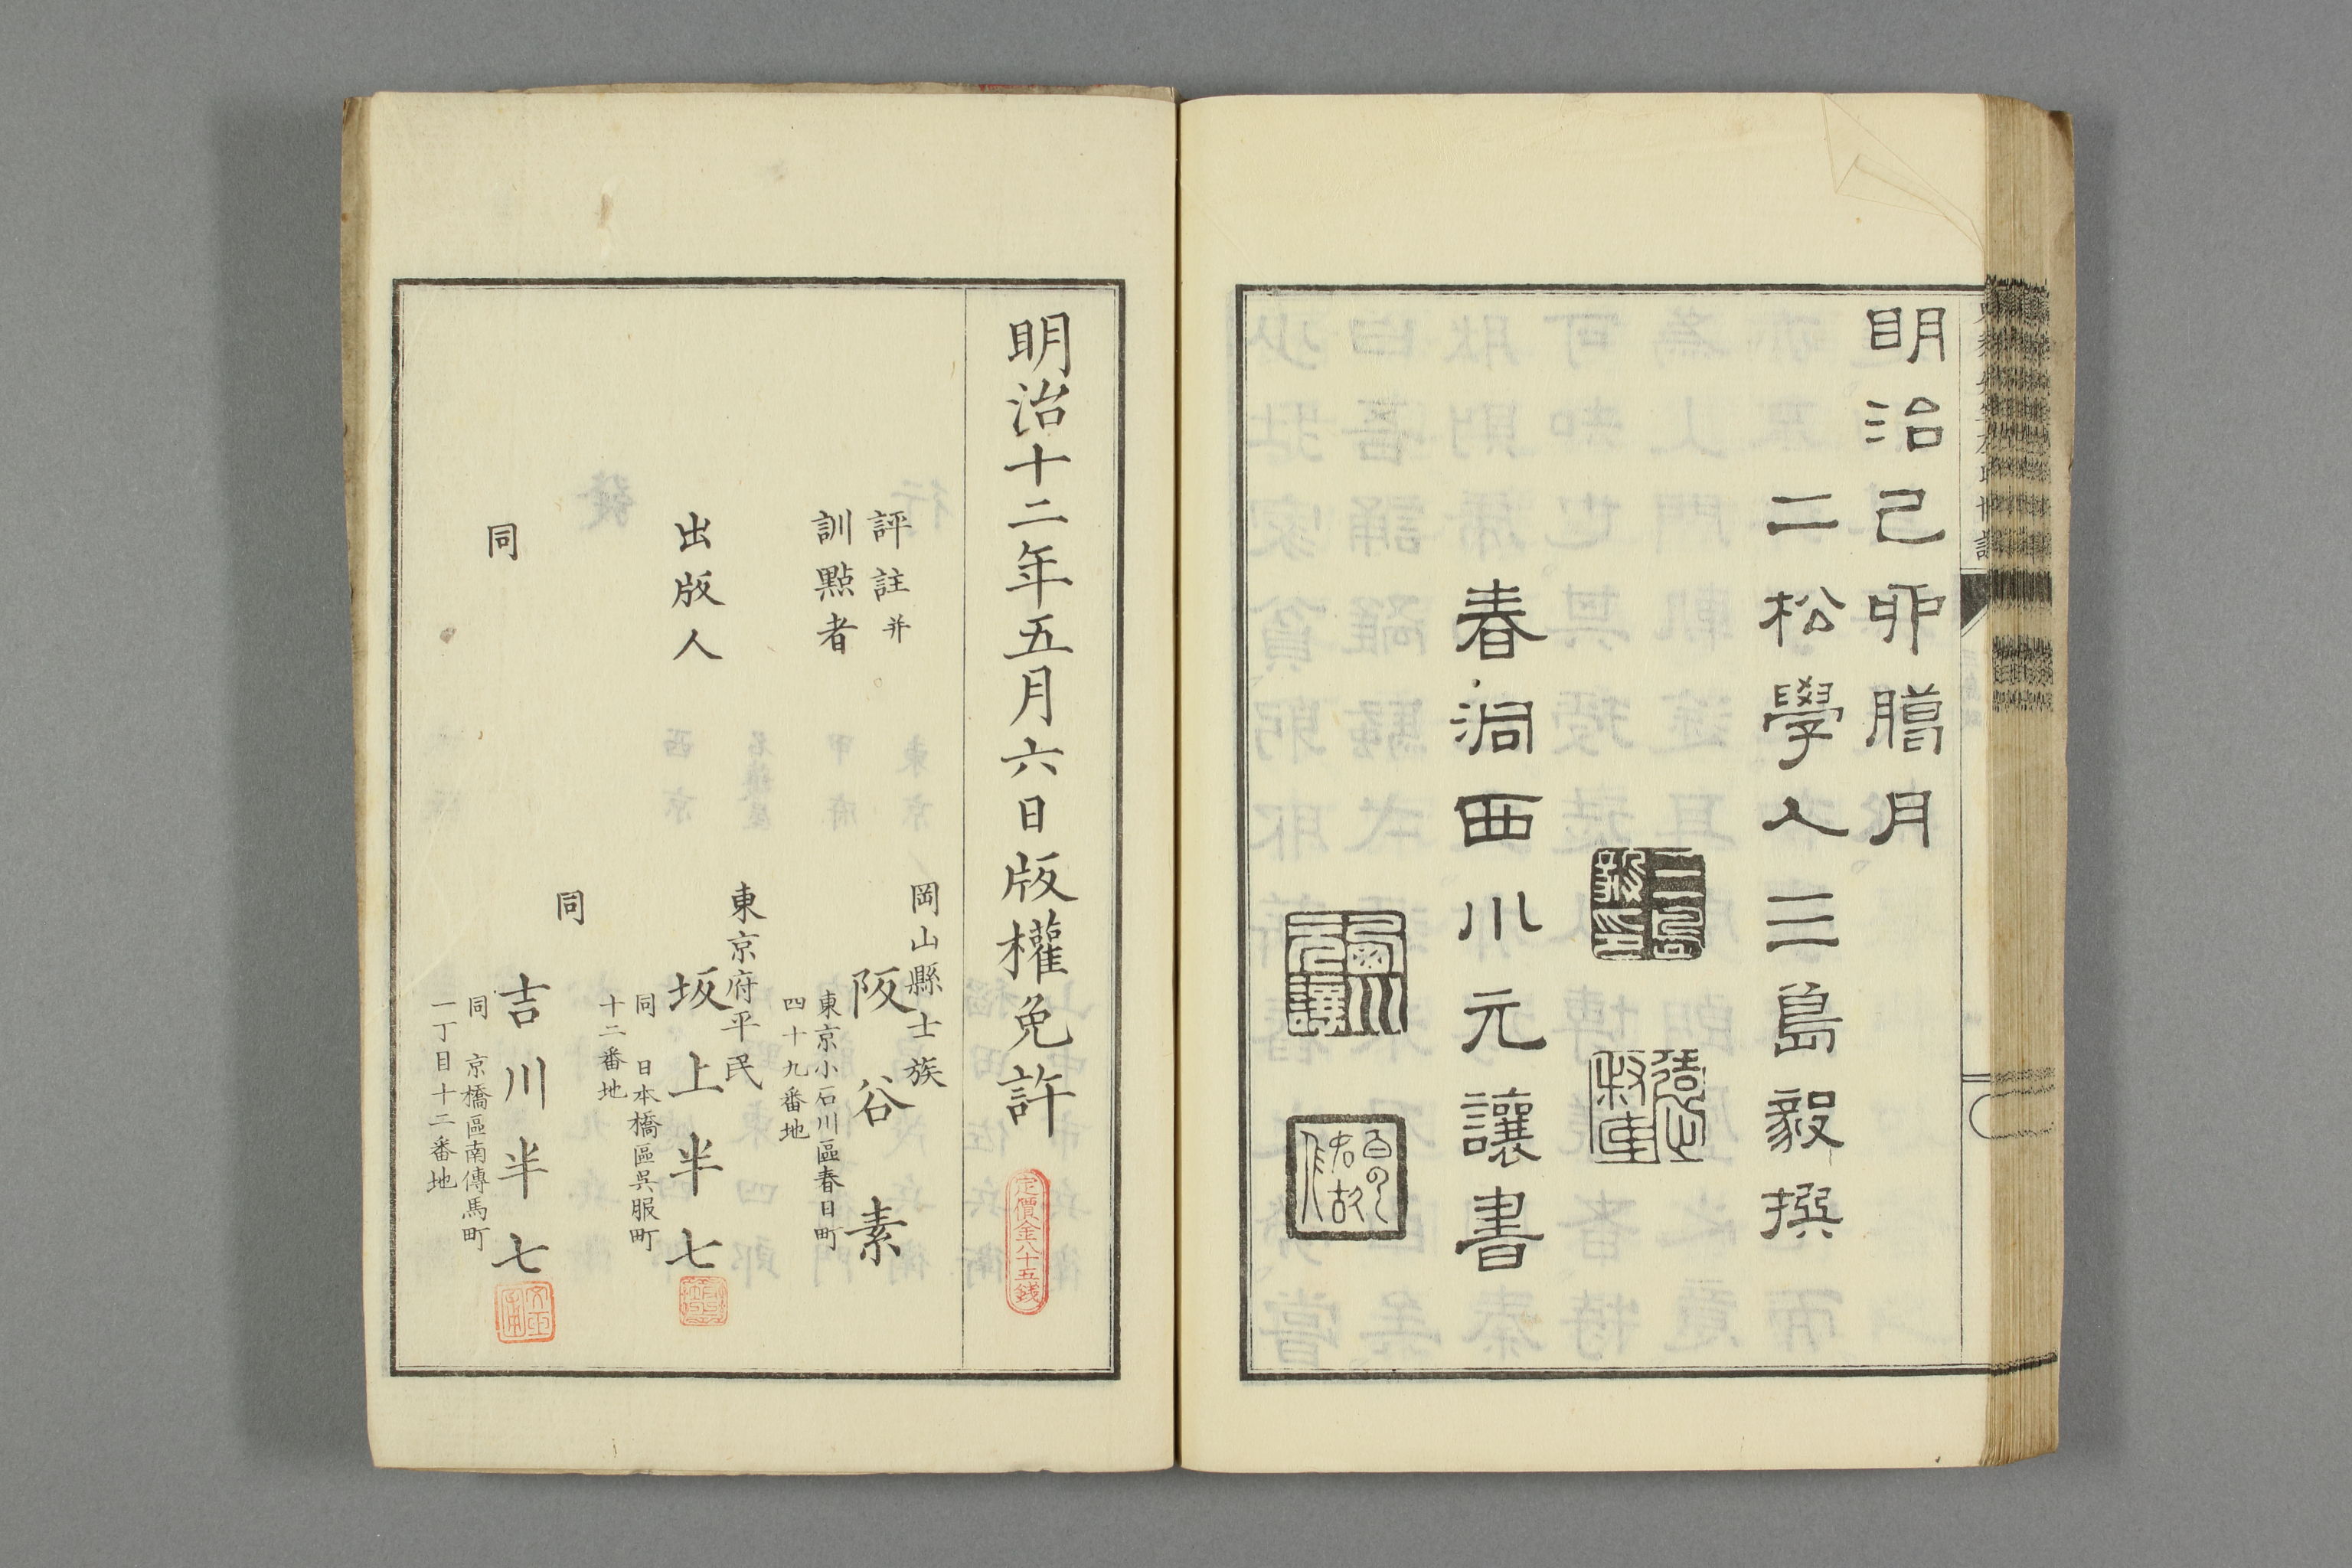 明治己卯臈月
二松學人三島毅撰
春洞西川元讓書
明治十二年五月六日版權免許
定價金八十五錢
評註并
訓點者
岡山縣士族
阪谷素
東京小石川區春日町
四十九番地
出版人
東京府平民
坂上半七
同 日本橋區吳服町
十二番地
同
同
吉川半七
同 京橋區南傳馬町
一丁目十二番地